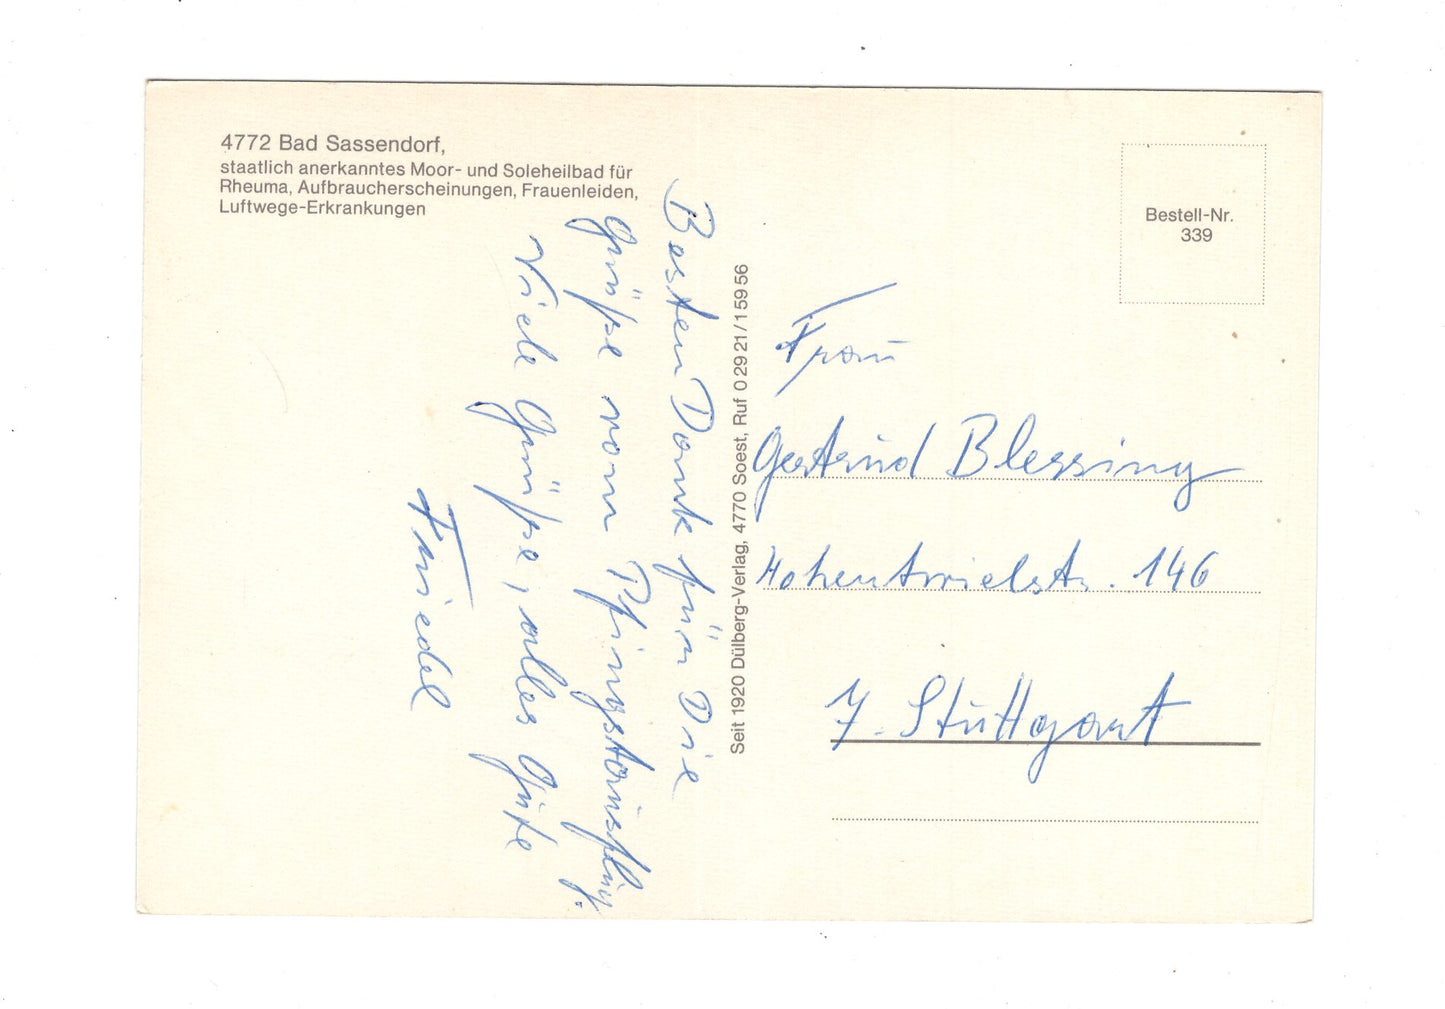 4772 Bad Sassendorf,
staatlich anerkanntes Moor- und Soleheilbad für
Rheuma, Aufbraucherscheinungen, Frauenleiden,
Luftwege-Erkrankungen
Besten Dank für Die
Grüße vom Pfingstausflug.
Viele Grüße, alles Gute
Friedel
Seit 1920 Dülberg-Verlag, 4770 Soest, Ruf 0 29 21 / 1 59 56
Bestell-Nr.
339
Frau
Gertrud Blessing
Hohentwielstr. 146
7. Stuttgart